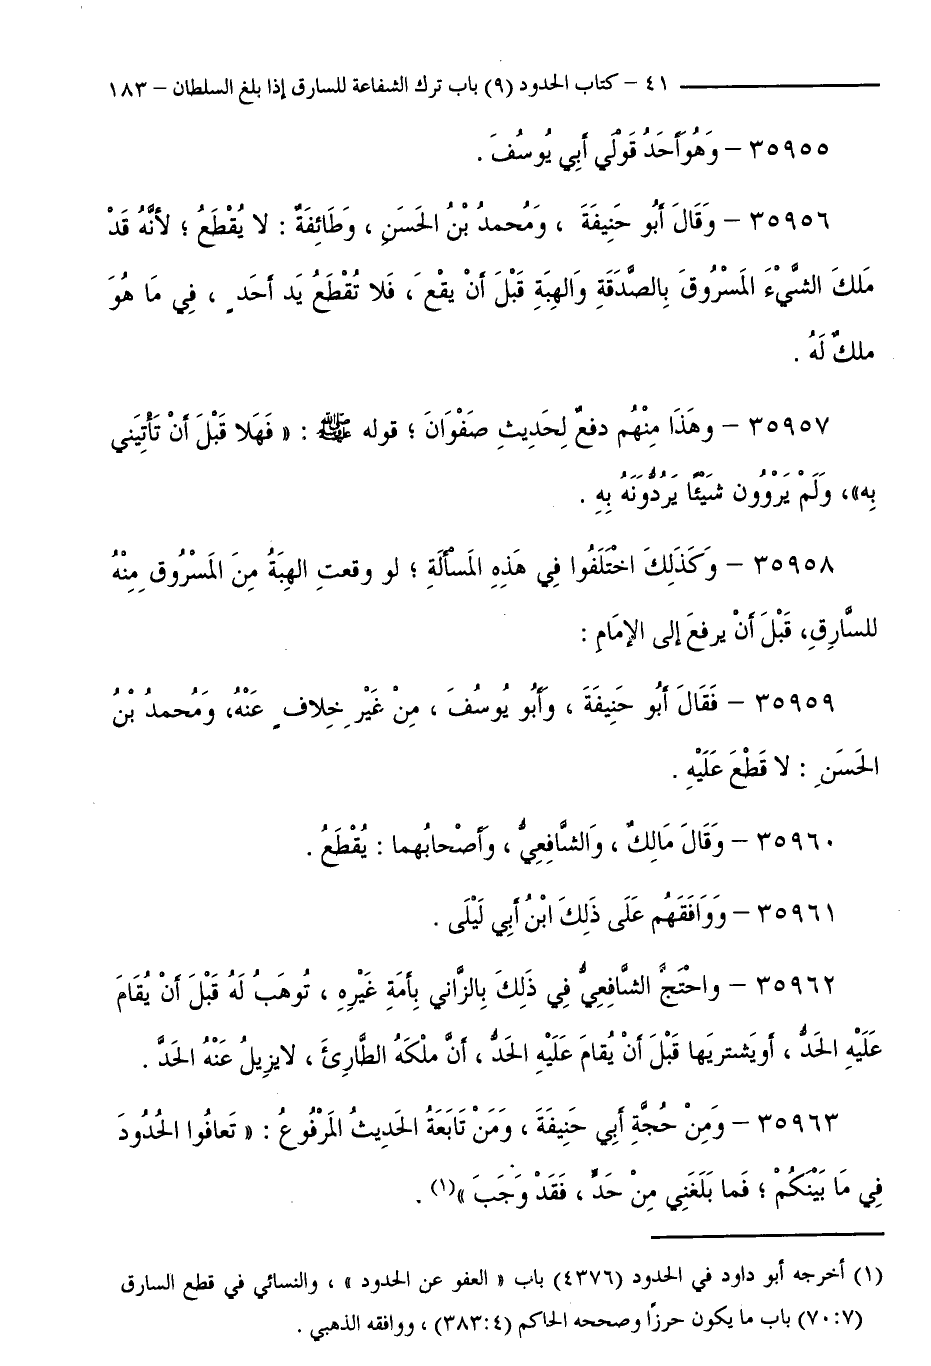 ٤١ – كتاب الحدود (٩) باب ترك الشفاعة للسارق إذا بلغ السلطان – ١٨٣
٣٥٩٥٥ – وَهُوَ أَحَدُ قَوْلَي أَبِي يُوسُفَ .
٣٥٩٥٦ – وَقَالَ أَبُو حَنِيفَةَ ، وَمُحمدُ بْنُ الحَسَنِ ، وَطَائِفَةٌ : لا يُقْطَعُ ؛ لأنَّهُ قَدْ
مَلَكَ الشَّيْءَ المَسْرُوقَ بِالصَّدَقَةِ وَالهِبَةِ قَبْلَ أَنْ يقْعَ ، فَلا تُقْطَعُ يَد أحَدٍ ، فِي مَا هُوَ
ملكٌ لَهُ .
٣٥٩٥٧ – وهَذَا مِنْهُم دفعٌ لِحَدِيثِ صَفْوَانَ ؛ قوله ﷺ : « فَهَلا قَبْلَ أَنْ تَأْتِيَني
بِه»، وَلَمْ يَرْوُون شَيْئًا يَرُدُّونَهُ بِهِ .
٣٥٩٥٨ – وَكَذَلِكَ اخْتَلَفُوا فِي هَذِهِ المَسْأَلَةِ ؛ لو وقعتِ الهِبَةُ مِنَ المَسْرُوقِ مِنْهُ
للسَّارِقِ، قَبْلَ أَنْ يرفعَ إلى الإمَامِ :
٣٥٩٥٩ – فَقَالَ أَبُو حَنِيفَةَ ، وَأَبُو يُوسُفَ ، مِنْ غَيْرِ خِلافٍ عَنْهُ، وَمُحمدُ بْنُ
الحَسَنِ : لا قَطْعَ عَلَيْهِ .
٣٥٩٦٠ – وَقَالَ مَالِكٌ ، وَالشَّافِعِيُّ ، وَأَصْحابُهما : يُقْطَعُ .
٣٥٩٦١ – وَوَافَقَهُم عَلَى ذَلِكَ ابْنُ أَبِي لَيْلَى .
٣٥٩٦٢ – واحْتَجَّ الشَّافِعِيُّ فِي ذَلِكَ بِالزَّاني بِأَمَةِ غَيْرِهِ ، تُوهَبُ لَهُ قَبْلَ أَنْ يُقَامَ
عَلَيْهِ الحَدُّ ، أويَشتريَها قَبْلَ أَنْ يُقامَ عَلَيْهِ الحَدُّ ، أَنَّ ملْكَهُ الطَّارِئَ ، لايزِيلُ عَنْهُ الحَدَّ .
٣٥٩٦٣ – وَمِنْ حُجَّةِ أَبِي حَنِيفَةَ ، وَمَنْ تَابَعَهُ الحَدِيثُ المَرْفُوعُ : « تَعافُوا الحُدُودَ
فِي مَا بَيْنَكُمْ ؛ فَما بَلَغَنِي مِنْ حَدٍّ ، فَقَدْ وَجَبَ »(١) .
(١) أخرجه أبو داود في الحدود (٤٣٧٦) باب « العفو عن الحدود » ، والنسائي في قطع السارق
(٧:٧٠) باب ما يكون حرزًا وصححه الحاكم (٤:٣٨٣) ، ووافقه الذهبي .